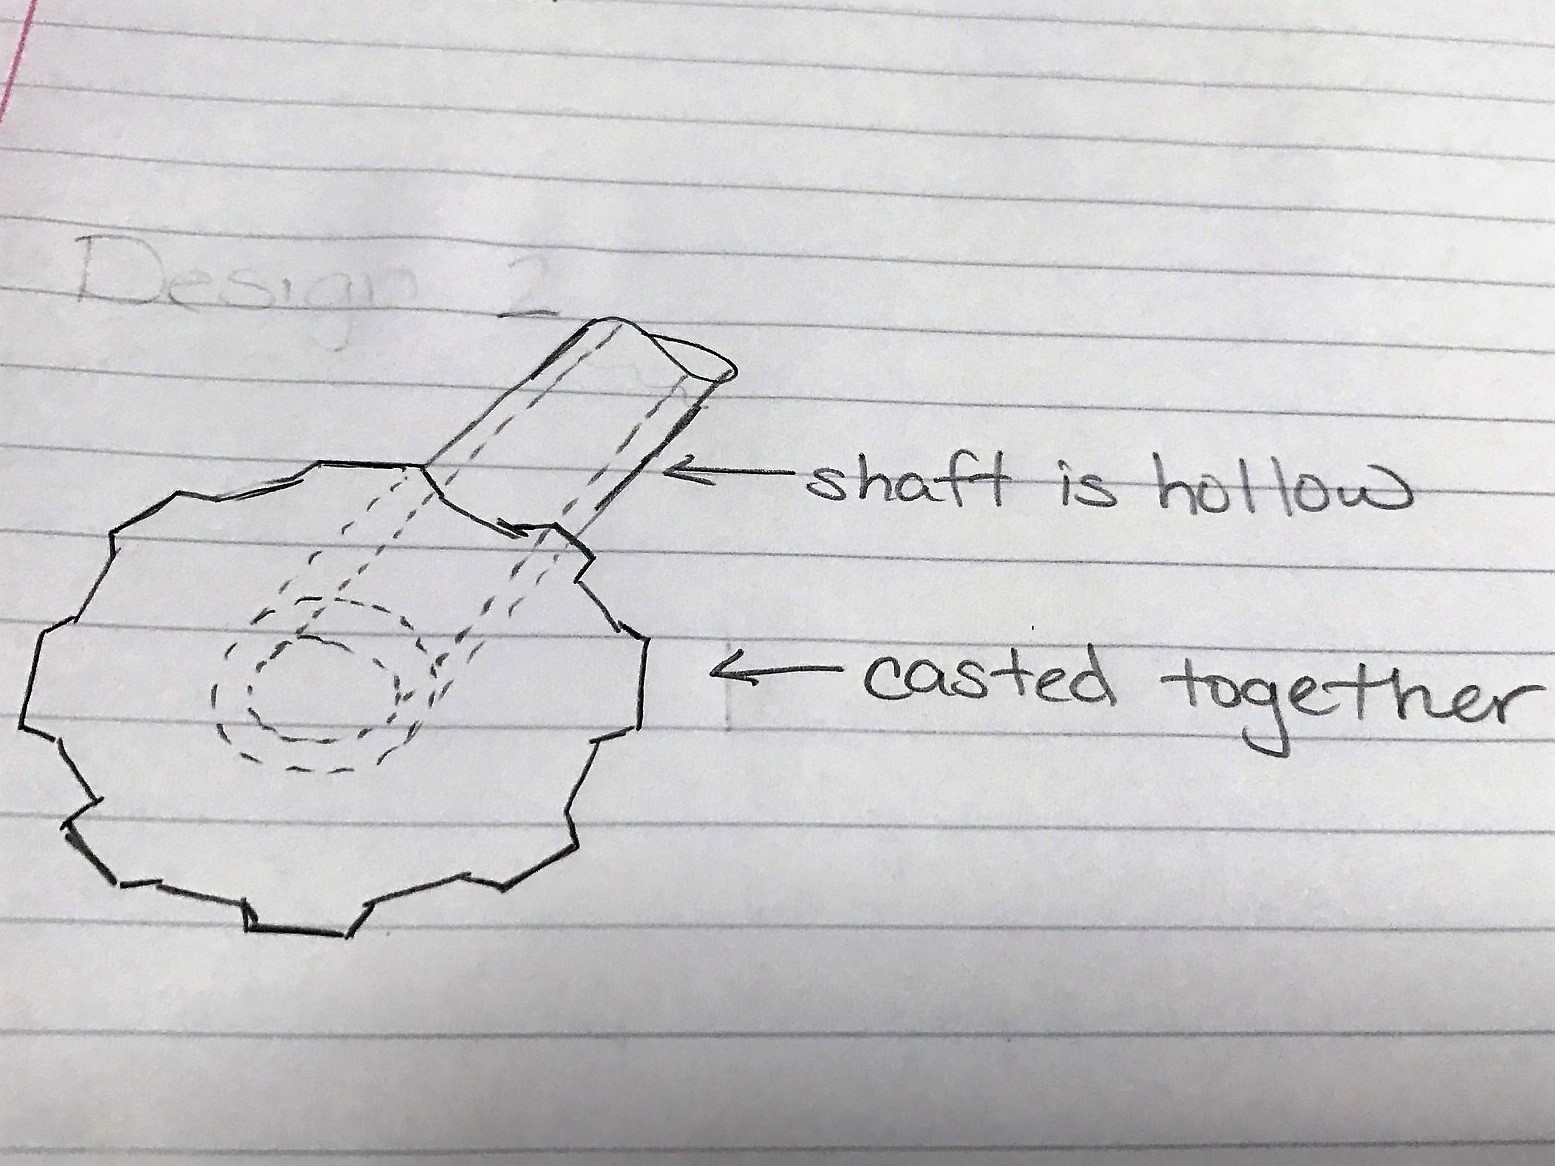 Design 2
shaft is hollow
casted together